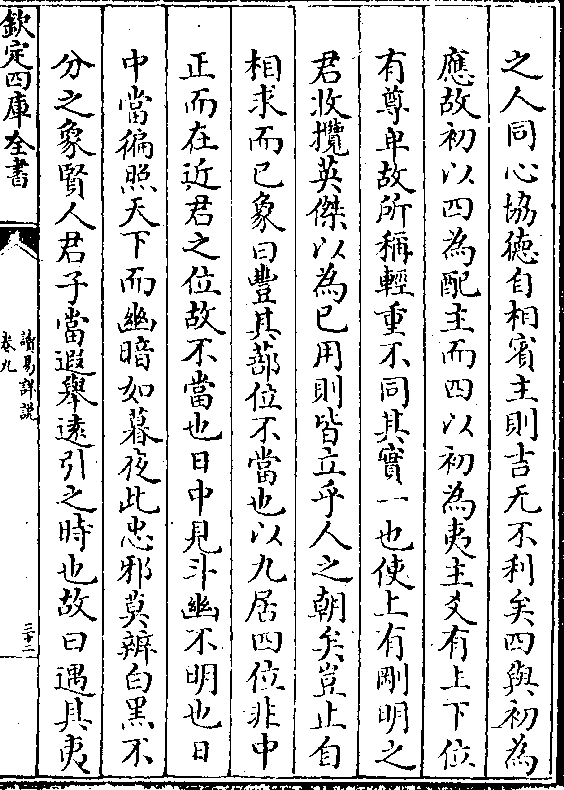 之人同心協德自相賓主則吉无不利矣四與初為
應故初以四為配主而四以初為夷主爻有上下位
有尊卑故所稱輕重不同其實一也使上有剛明之
君收攬英傑以為已用則皆立乎人之朝矣豈止自
相求而已象曰豐其蔀位不當也以九居四位非中
正而在近君之位故不當也日中見斗幽不明也日
中當徧照天下而幽暗如暮夜此忠邪莫辨白黑不
分之象賢人君子當遐舉遠引之時也故曰遇其夷
欽定四庫全書
讀易詳說
卷九
三十二